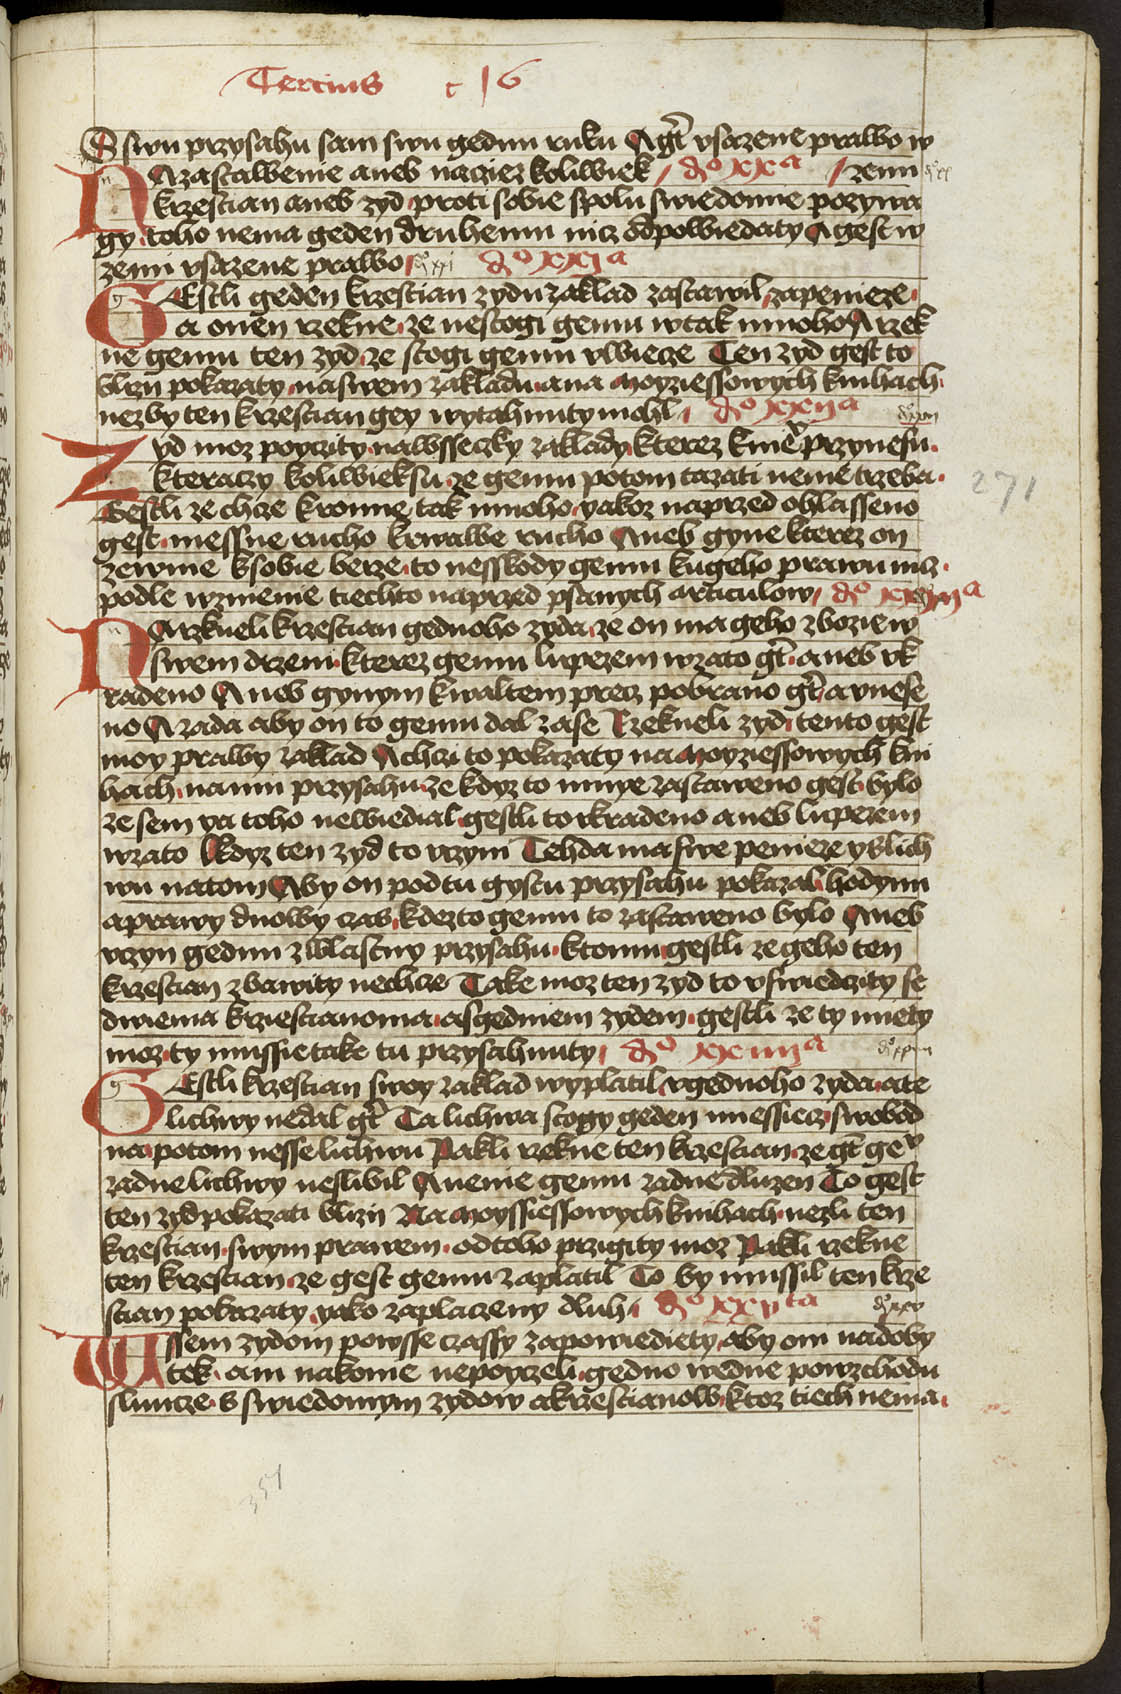 Tercius c 16
S swu przysahu sam swu gednu ruku A gt vsazene prawo w
NAzastawenie aneb naczez koliwiek / do xxa / zemi
krzestian aneb zyd proti sobie spolu swiedomie pozywa
gy toho nema geden druhemu nicz odpowiedaty A gest w
zemi vsazene prawo do xxi do xxja
GEstli geden krzestian zydu zaklad zastawil zapenieze
a onen rzekne ze nestogi gemu wtak mnoho A rzek
ne gemu ten zyd ze stogi gemu vwiecze Ten zyd gest to
blizij pokazaty naswem zakladu ana Moyziessowych knihach
nezby ten krzestian gey wytahnuty mohl do xxija
Zyd moz poyczity nawsseczky zaklady kterez knie przynesu
kteraczy koliwieksu ze gemu potom tazati nenie trzeba
Gestli ze chcze kromie tak mnoho yakoz naprzed ohlasseno
gest messne rucho krwawe rucho Aneb gyne kterez on
zewnie ksobie berze to nesskody gemu kugeho prawu nicz
podle wzmenie tiechto naprzed psanych articulow do xxiija
NArzkneli krzestian gednoho zyda ze on ma geho zbozie w
swem drzeni kterez gemu lupezem wzato gt aneb vk
radeno Aneb gynym kwaltem precz pobrano gt a vnese
no A zada aby on to gemu dal zase Rzekneli zyd tento gest
moy prawy zaklad A chczi to pokazaty na Moyziessowych kni
hach na mu przysahu ze kdyz to mnye zastaweno gest bylo
ze sem ya toho newiedial gestli to vkradeno aneb lupezem
wzato Kdyz ten zyd to vczyni Tehda ma swe penieze y slich
wu natom Aby on podtu gystu przysahu pokazal hodynu
a prawy dnowy czas kdezto gemu to zastaweno bylo Aneb
vczyn gednu zwlastny przysahu ktomu gestli ze geho ten
krzestian zbawity nechcze Take moz ten zyd to vswiedczity se
dwiema krziestianoma a sgedniem zydem gestli ze ty miety
moz ty mussie take tu przysahnuty do xxiiija
GEstli krzestian swoy zaklad wyplatil vgednoho zyda a te
lichwy nedal gt Ta lichwa stogy geden miessiecz swobod
na potom nesse lichwu Pakli rzekne ten krzestian ze gt gey
zadne lichwy neslibil A nenie gemu zadne dluzen To gest
ten zyd pokazati blizij Na Moyssiessowych knihach nezli ten
krzestian swym prawem odtoho przigity moz Pakli rzekne
ten krzestian ze gest gemu zaplatil To by mussil ten krze
stian pokazaty yako zaplaczeny dluh do xxvta do xxv
Wssem zydom powsse czassy zapowiediety aby oni nadoby
tek ani nakonie nepoyczeli gedno wedne powzchodu
slunce s swiedomym zydow a krzestianow ktoz tiech nema
271
357